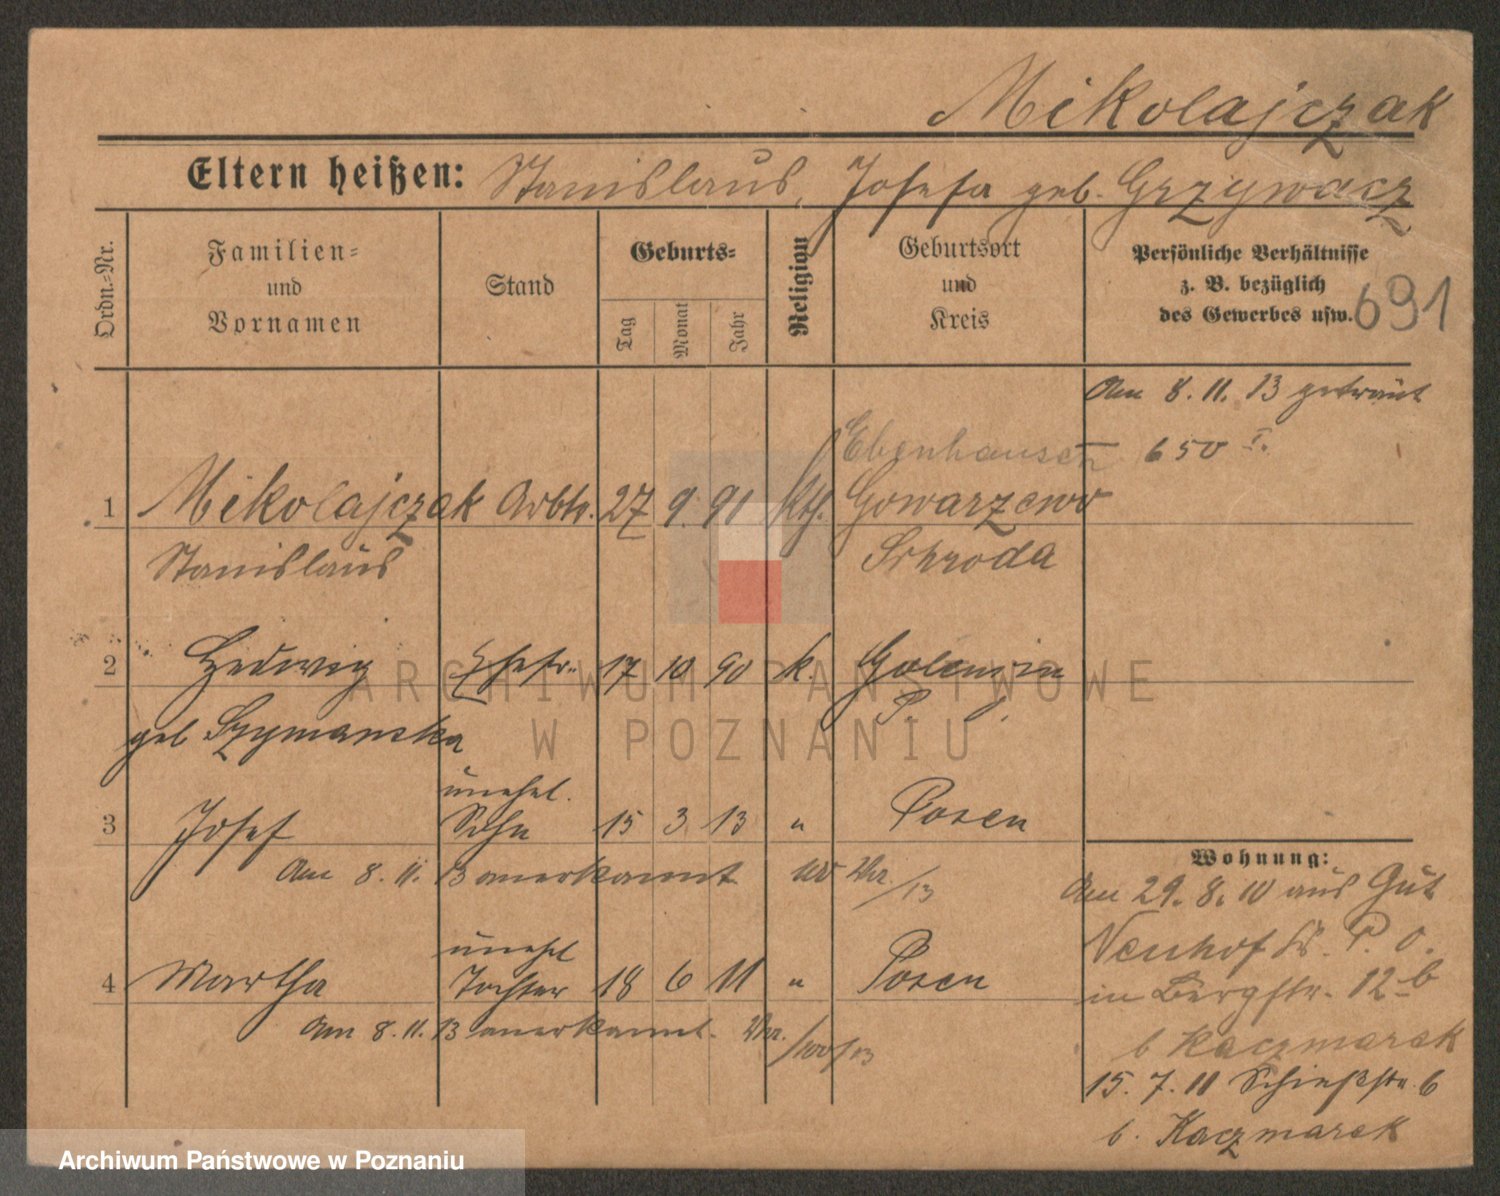 Mikolajczak
Eltern heißen: Stanislaus, Josefa geb. Grzywacz
Ordn.-Nr.
Familien-
und
Vornamen
Stand
Geburts-
Tag
Monat
Jahr
Religion
Geburtsort
und
Kreis
Persönliche Verhältnisse
z. B. bezüglich
des Gewerbes usw.
691
Am 8. 11. 13 getraut
650 I.
Ebenhausen
1 Mikolajczak Arbtr. 27 9. 91 kth. Gowarzewo
Stanislaus Schroda
2 Hedwig Ehefr. 17 10 90 k. Golenczin
geb Szymanska P. O.
unehel.
3 Josef Sohn 15 3 13 " Posen
Am 8. 11. 13 anerkannt /13
unehel
4 Martha Tochter 18 6 11 " Posen
Am 8. 11. 13 anerkannt.
Wohnung:
Am 29. 8. 10 aus Gut
Neuhof Kr. P. O.
in Bergstr. 12 b
b Kaczmarek
15. 7. 11 Schießstr. 6
b. Kaczmarek
ARCHIWUM PAŃSTWOWE
W POZNANIU
Archiwum Państwowe w Poznaniu